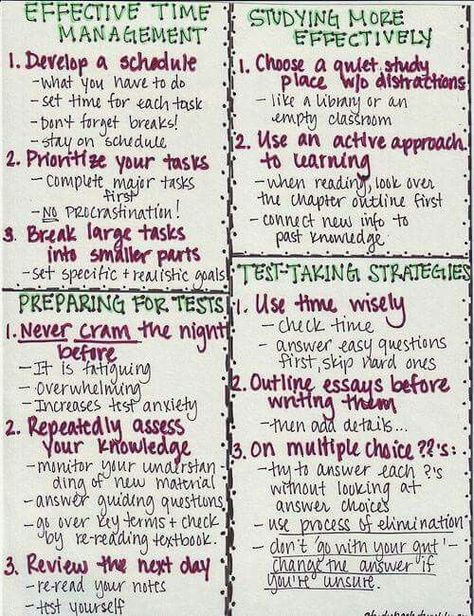 EFFECTIVE TIME
MANAGEMENT
1. Develop a schedule
- what you have to do
- set time for each task
- Don't forget breaks!
- stay on schedule
2. Prioritize your tasks
- Complete major tasks
first
- NO PROCRASTINATION!
3. Break large tasks
into smaller parts
- set specific + realistic goals
STUDYING MORE
EFFECTIVELY
1. Choose a quiet study
place w/o distractions
- like a library or an
empty classroom
2. Use an active approach
to learning
- when reading, look over
the chapter outline first
- connect new info to
past knowledge
PREPARING FOR TESTS
1. Never cram the night
before
- It is fatiguing
- Overwhelming
- Increases test anxiety
2. Repeatedly assess
your knowledge
- monitor your understan-
ding of new material
- answer guiding questions
- go over key terms + check
by re-reading textbook.
3. Review the next day
- re-read your notes
- test yourself
TEST-TAKING STRATEGIES
1. Use time wisely
- check time
- answer easy questions
first, skip hard ones
2. Outline essays before
writing them
- then add details...
3. On multiple choice ??'s:
- try to answer each ?'s
without looking at
answer choices
- use process of elimination
- don't 'go with your gut' -
change the answer if
you're unsure.